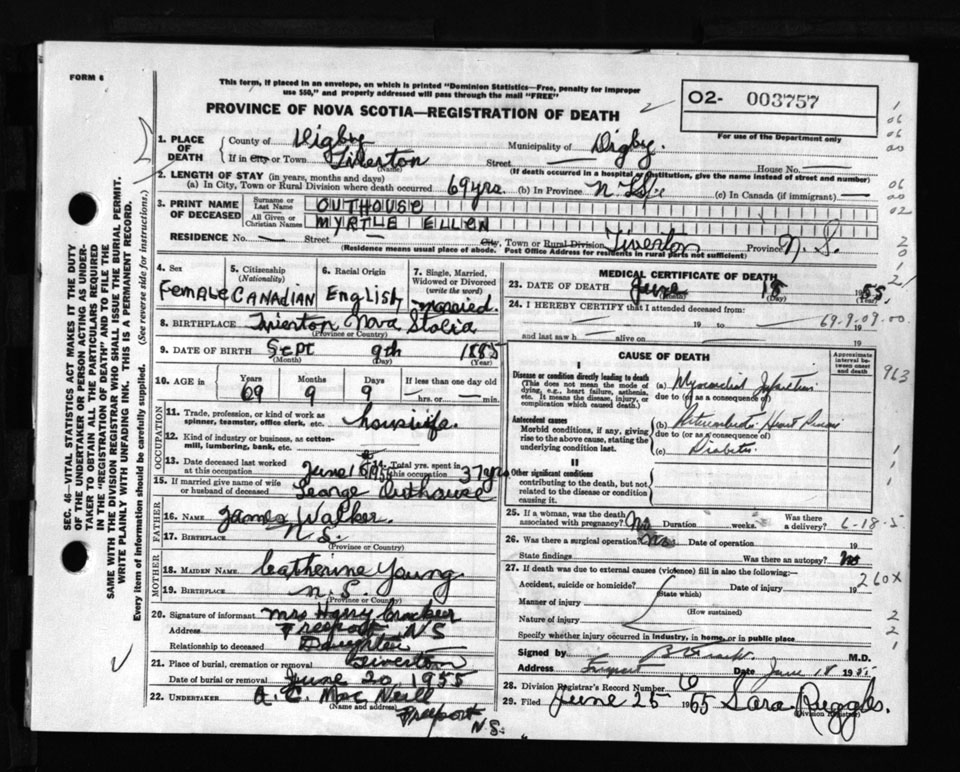 FORM 6
This form, if placed in an envelope, on which is printed "Dominion Statistics—Free, penalty for improper
use $50," and properly addressed will pass through the mail "FREE"
PROVINCE OF NOVA SCOTIA—REGISTRATION OF DEATH
02- 003757
For use of the Department only
1. PLACE OF DEATH County of Digby Municipality of Digby.
If in City or Town Tiverton (Name) Street — House No. —
(If death occurred in a hospital or institution, give the name instead of street and number)
2. LENGTH OF STAY (in years, months and days)
(a) In City, Town or Rural Division where death occurred 69 yrs. (b) In Province (c) In Canada (if immigrant) —
3. PRINT NAME OF DECEASED Surname or Last Name OUTHOUSE
All Given or Christian Names MYRTLE ELLEN
RESIDENCE No. — Street — City, Town or Rural Division Tiverton Province N. S.
(Residence means usual place of abode. Post Office Address for residents in rural parts not sufficient)
4. Sex Female
5. Citizenship (Nationality) CANADIAN
6. Racial Origin English
7. Single, Married, Widowed or Divorced (write the word) married.
8. BIRTHPLACE Tiverton Nova Scotia
(Province or Country)
9. DATE OF BIRTH Sept (Month) 9th (Day) 1885 (Year)
10. AGE in Years 69 Months 9 Days 9 If less than one day old — hrs. or — min.
OCCUPATION
11. Trade, profession, or kind of work as spinner, teamster, office clerk, etc. housiwfa.
12. Kind of industry or business, as cotton-mill, lumbering, bank, etc.
13. Date deceased last worked at this occupation June 1955 Total yrs. spent in this occupation 37 yrs
15. If married give name of wife or husband of deceased George Outhouse
FATHER
16. NAME James Walker.
17. BIRTHPLACE N. S.
(Province or Country)
MOTHER
18. MAIDEN NAME Catherine Young
19. BIRTHPLACE N. S.
(Province or Country)
20. Signature of informant Mrs Harry Crocker
Address Freeport N S
Relationship to deceased Daughter
21. Place of burial, cremation or removal Tiverton
Date of burial or removal June 20 1955
22. UNDERTAKER A. C. Mac Neill
(Name and address) Freeport N S.
MEDICAL CERTIFICATE OF DEATH
23. DATE OF DEATH June (Month) 18 (Day) 1955
24. I HEREBY CERTIFY that I attended deceased from:
19 to 19
69-9-09-00
and last saw h alive on 19
CAUSE OF DEATH
Approximate interval between onset and death
963
I
Disease or condition directly leading to death
(This does not mean the mode of dying, e.g., heart failure, asthenia, etc. It means the disease, injury, or complication which caused death.)
(a) Myocardial Infarction
due to (or as a consequence of)
Antecedent causes
Morbid conditions, if any, giving rise to the above cause, stating the underlying condition last.
(b) Arteriosclerotic Heart Disease
due to (or as a consequence of)
(c) Diabetes
II
Other significant conditions
contributing to the death, but not related to the disease or condition causing it.
25. If a woman, was the death associated with pregnancy? No Duration weeks. Was there a delivery?
6-18-5
26. Was there a surgical operation? No Date of operation 19
State findings Was there an autopsy? No
27. If death was due to external causes (violence) fill in also the following:
260X
Accident, suicide or homicide? (State which) Date of injury 19
Manner of injury
(How sustained)
Nature of injury
Specify whether injury occurred in industry, in home, or in public place
Signed by M.D.
Address Freeport Date June 18 1955
28. Division Registrar's Record Number 6
29. Filed June 25 1955 Sara Ruggles.
(Division Registrar)
SEC. 46—VITAL STATISTICS ACT MAKES IT THE DUTY
OF THE UNDERTAKER OR PERSON ACTING AS UNDER-
TAKER TO OBTAIN ALL THE PARTICULARS REQUIRED
IN THE "REGISTRATION OF DEATH" AND TO FILE THE
SAME WITH THE DIVISION REGISTRAR WHO SHALL ISSUE THE BURIAL PERMIT.
WRITE PLAINLY WITH UNFADING INK. THIS IS A PERMANENT RECORD.
Every item of information should be carefully supplied. (See reverse side for instructions.)